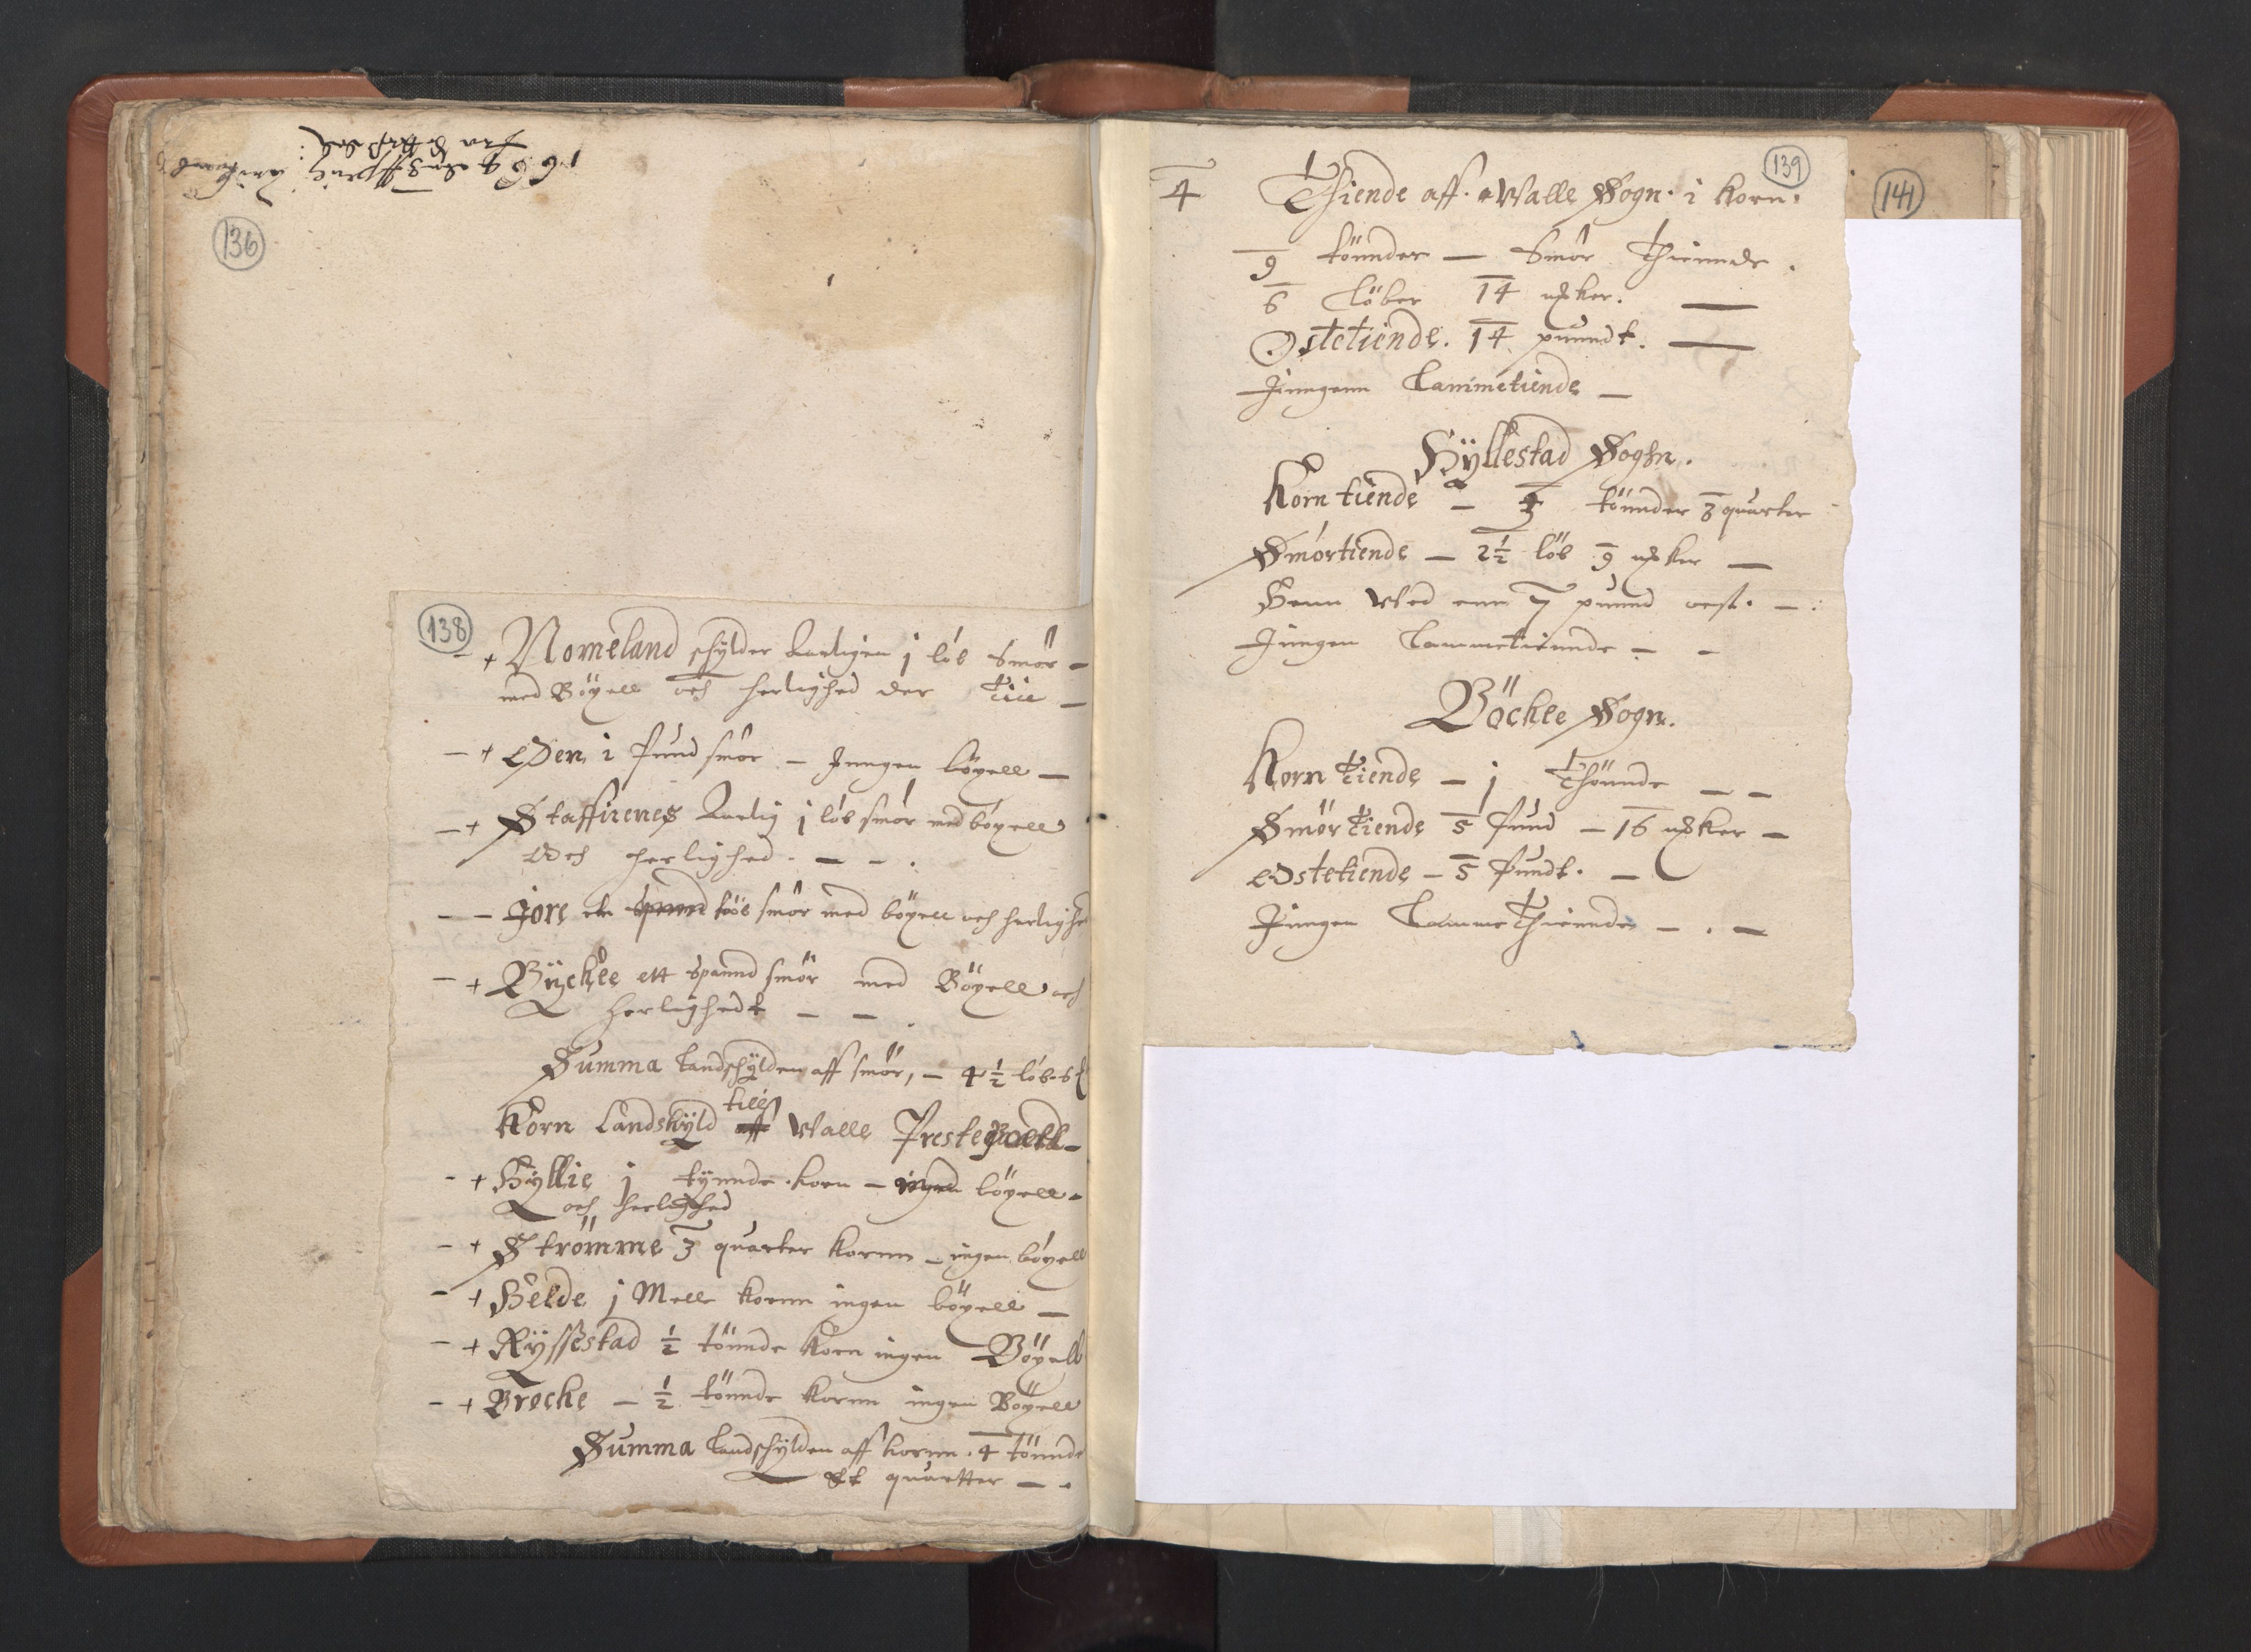 136
138
+ Nomeland schylder Aarligen j løb Smør –
med Böxell och herlighed der till –
– + Oen 1 Pund smør – Inngen böxell –
– + Staffirenes Aarlig j løb smør med böxell
Och herlighed. – – .
– – Jore et Spannd løb smør med böxell och herlighed
– + Byckle ett Spannd smør med Böxell och
Herlighedt – – .
Summa Landschylden aff smør, – 4½ løb
till
Korn Landskyld aff Walle Prestegield –
– + Hyllie j tynnde korn – ingen böxell –
och herlighed
– + Strømme 3 quarter Kornn – ingen böxell
– + Helde j Mele kornn ingen böxell –
– + Ryssestad ½ tönnde Korn ingen Böxell
– + Brocke – ½ tönnde kornn ingen Böxell
Summa Landschylden aff kornn. 4 tönnde
Et quartter – .
139
141
4 Thiende aff Walle Sogn. i Korn.
9 tönnder – Smør Thiennde .
6 Løber 14 mker. –
Ostetiende. 14 punndt. –
Inngenn Lammetiende –
Hyllestad Sogn.
Korn tiende – tönnder 3 quarter
Smørtiende – 2½ løb 9 mker –
Henn Wed enn 7 punnd ost. – :
Inngen Lammetiennde – –
Böckle Sogn.
Korn Tiende – j Thönnde – –
Smør Tiende 5 Pund – 16 mker –
Ostetiende – 5 Pundt. –
Inngen Lamme Thiennde – . –